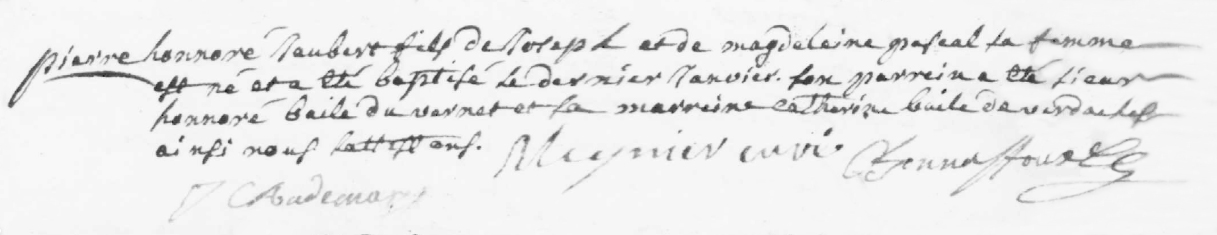 pierre honnoré Jaubert fils de Joseph et de magdeleine pascal sa femme
est né et a été baptisé le dernier Janvier. son parrein a été sieur
honnoré baile du vernet et sa marreine catherine baile de verdaches
ainsi nous l'attestons. Meynier curé Bonnaffoux
J Audemar